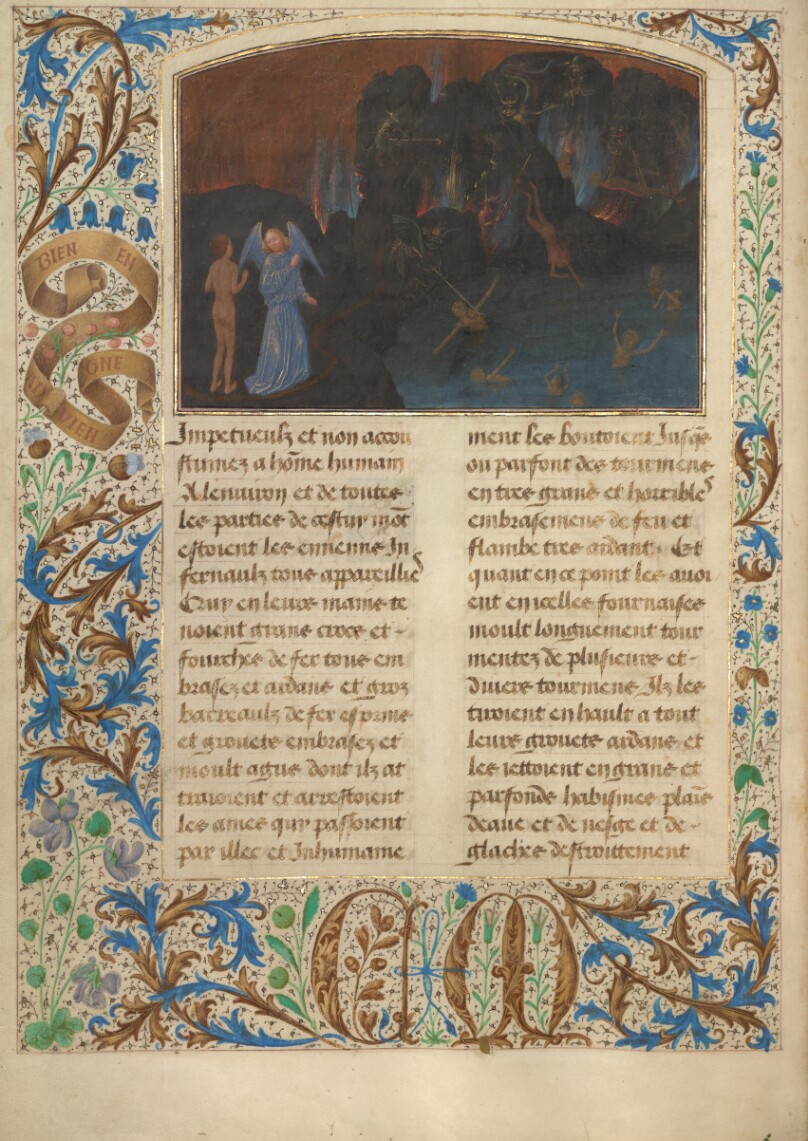 BIEN EN
AVIENGNE
Impetueulz et non accou
stumez a hõme humain
A lenuiron et de toutes
les parties de cestui mõt
estoient les ennemis In
fernaulz tous appareillies
Quy en leurs mains te
noient grans crocs et -
fourches de fer tous em
brasez et ardans et groz
barreaulz de fer esprins
et grouets embrasez et
moult agus dont ilz at
traioient et arrestoient
les ames quy passoient
par illec et Inhumaine
ment les boutoient Jusq̃s
ou parfont des tourmens
en tres grans et horribles
embrasemens de feu et
flambe tres ardant. Et
quant en ce point les auoi
ent en icelles fournaises
moult longuement tour
mentez de plusieurs et -
diuers tourmens Ilz les
tiroient en hault a tout
leurs grouets ardans et
les iettoient en grans et
parfonds habismes plaĩs
deaue et de neige et de -
glaches destroittement
C M